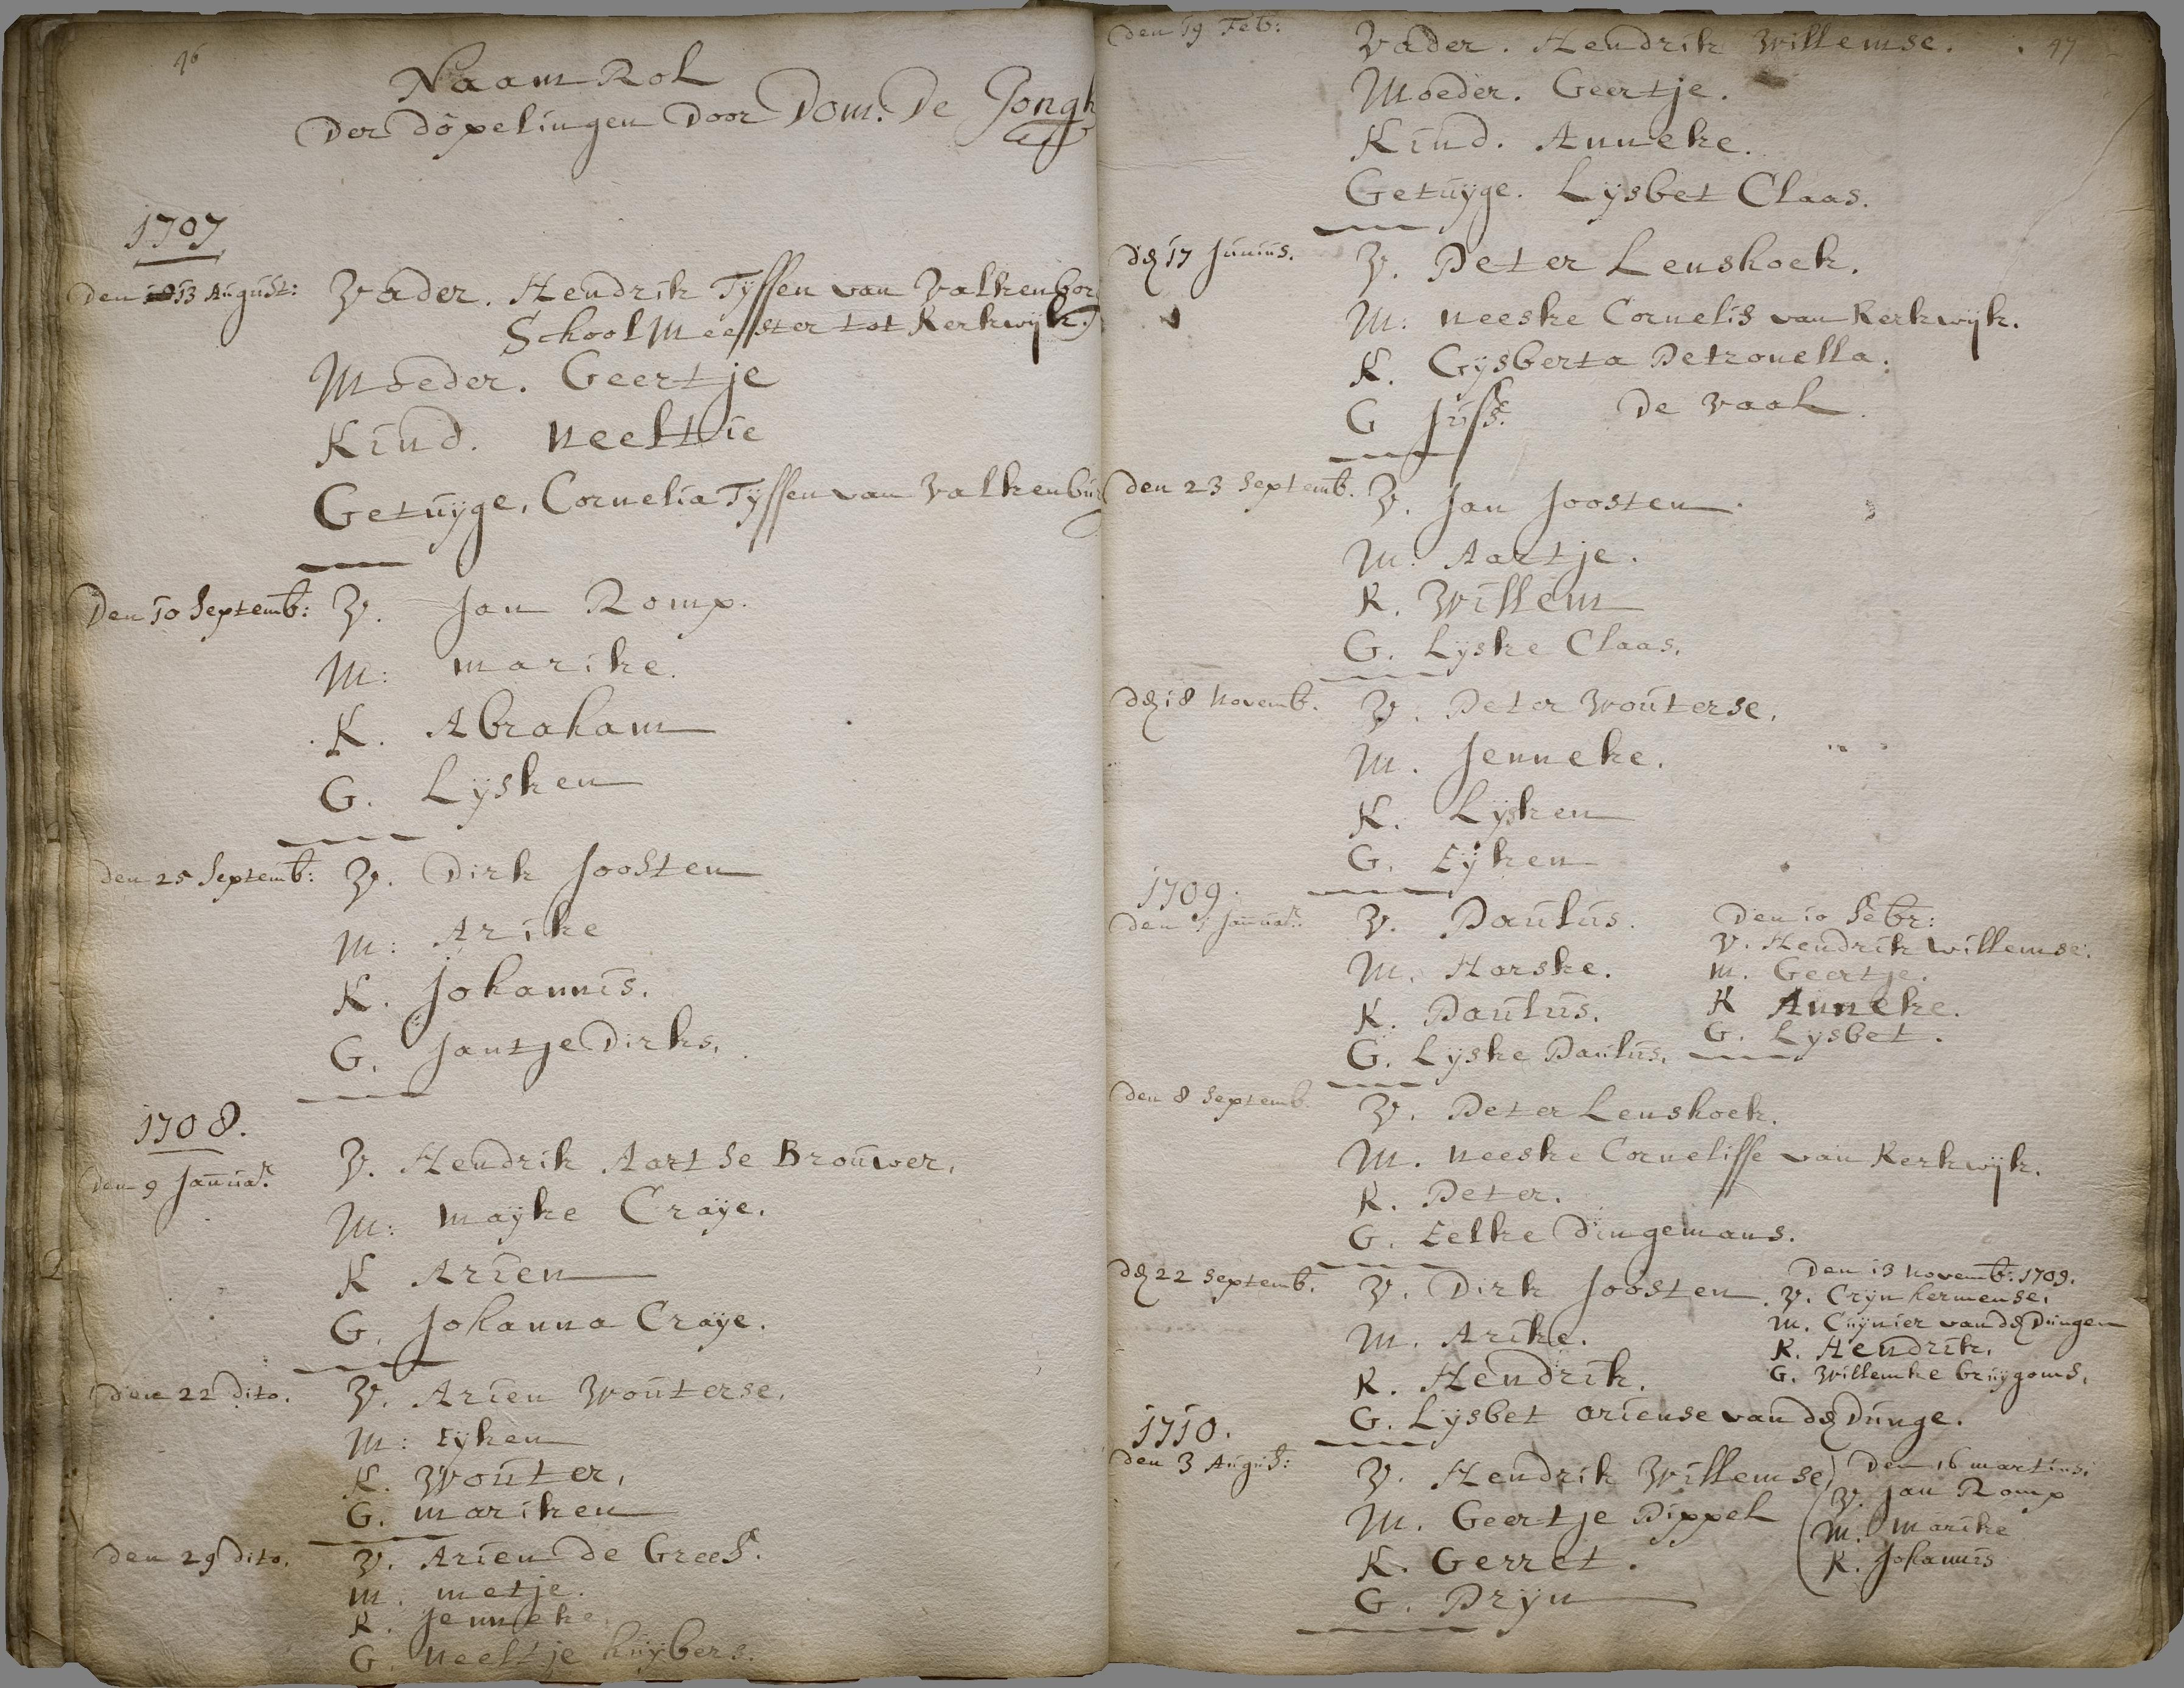 46
Naam Rol
Der döpelingen Door Dom. De Jongh
1707
Den 13 August: Vader. Hendrik Tÿssen van Valkenbor
School Meester tot Kerkwÿk.
Moeder. Geertje
Kind. Neeltie
Getuÿge, Cornelia Tÿssen van Valkenbur
Den 10 Septemb: V. Jan Romp.
M: marike.
K. Abraham
G. Lÿsken
den 25 Septemb: V. Dirk Joosten
M: Arike
K. Johannis.
G. Jantje Dirks.
1708.
den 9 Januar. V. Hendrik Aartse Brouwer,
M: Maÿke Craÿe.
K Arien
G. Johanna Craÿe.
den 22 dito. V. Arien Wouterse.
M: Eÿken
K. Wouter,
G. mariken
den 29 dito. V. Arien de Greef.
M. metje.
K. Jenneke.
G. Neeltje huÿbers.
47
den 19 Feb: Vader. Hendrik Willemse.
Moeder. Geertje.
Kind. Anneke.
Getuÿge. Lÿsbet Claas.
dē 17 Junius. V. Peter Lenshoek.
M: neeske Cornelis van Kerkwÿk.
K. Gÿsberta Petronella.
G Juff. De Vaal.
den 23 Septemb. V. Jan Joosten.
M. Aartje.
K. Willem
G. Lÿske Claas.
dē 18 Novemb. V. Peter Wouterse.
M. Jenneke.
K. Lÿsken
G. Eÿken
1709.
den Januar. V. Paulus.
M. Harske.
K. Paulus.
G. Lÿske Paulus.
Den 10 Febr:
V. Hendrik Willemse.
M. Geertje.
K Anneke.
G. Lysbet.
den 8 Septemb. V. Peter Lenshoek.
M. Neeske Cornelisse van Kerkwÿk.
K. Peter.
G. Eelke Dingemans.
dē 22 Septemb. V. Dirk Joosten
M. Arike.
K. Hendrik.
G. Lÿsbet Ariense van dē Dunge.
Den 13 Novemb. 1709.
V. Crÿn hermense.
M. Cuÿnier van dē Dungen
K. Hendrik.
G. Willemke bruÿgoms.
1710.
den 3 August: V. Hendrik Willemse
M. Geertje Pippel
K. Gerret.
G. Prÿn
Den 16 martius:
V. Jan Romp
M. Marike
K. Johannis